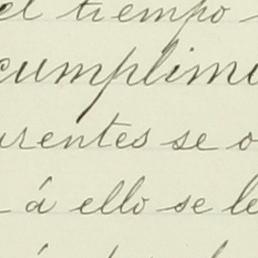 el tiempo
cumplimi
urentes se o
á ello se le